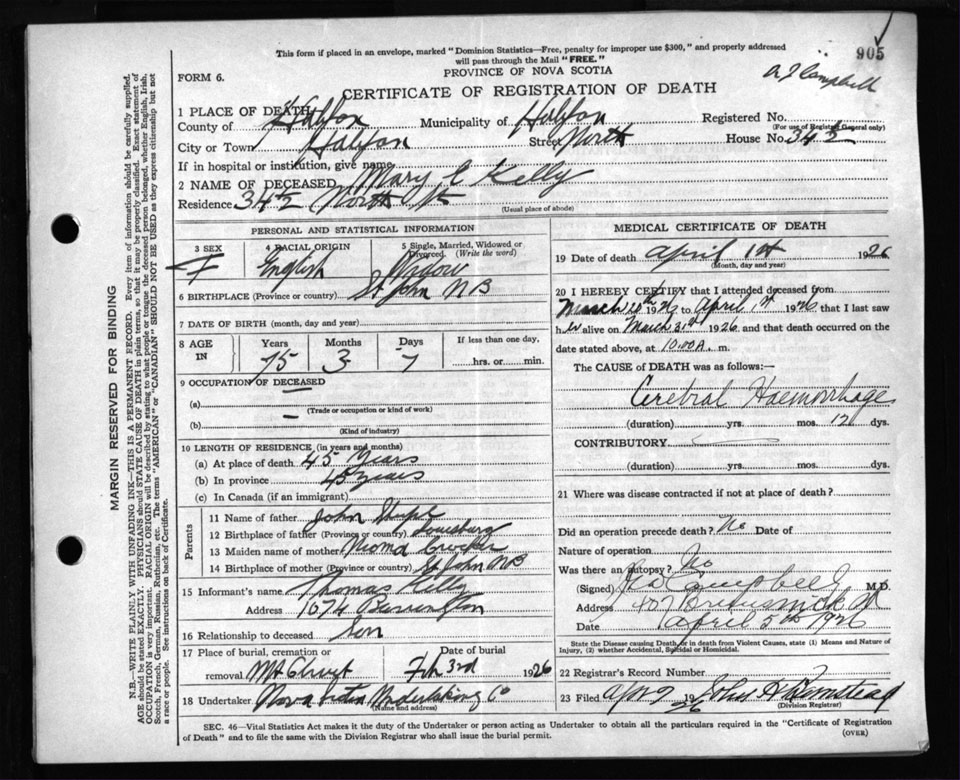 This form if placed in an envelope, marked "Dominion Statistics—Free, penalty for improper use $300," and properly addressed
will pass through the Mail "FREE."
905
PROVINCE OF NOVA SCOTIA
FORM 6.
A J Campbell
CERTIFICATE OF REGISTRATION OF DEATH
1 PLACE OF DEATH
County of Halifax Municipality of Halifax Registered No.
(For use of Registrar General only)
City or Town Halifax Street North House No. 342
If in hospital or institution, give name
2 NAME OF DECEASED Mary C Kelly
Residence 342 North St
(Usual place of abode)
PERSONAL AND STATISTICAL INFORMATION
3 SEX 4 RACIAL ORIGIN 5 Single, Married, Widowed or Divorced. (Write the word)
F English Widow
6 BIRTHPLACE (Province or country) St John N B
7 DATE OF BIRTH (month, day and year)
8 AGE IN Years Months Days If less than one day,
75 3 7 hrs. or min.
9 OCCUPATION OF DECEASED
(a) —
(Trade or occupation or kind of work)
(b) —
(Kind of industry)
10 LENGTH OF RESIDENCE (in years and months)
(a) At place of death 45 Years
(b) In province 45 years
(c) In Canada (if an immigrant)
Parents
11 Name of father John
12 Birthplace of father (Province or country) Louisburg
13 Maiden name of mother
14 Birthplace of mother (Province or country) St John NB
15 Informant's name Thomas Kelly
Address 167 Barrington
16 Relationship to deceased Son
17 Place of burial, cremation or removal Date of burial
Mt Olivet 3rd 1926
18 Undertaker Nova Scotia Undertaking Co
(Name and address)
MEDICAL CERTIFICATE OF DEATH
19 Date of death April 1st 1926
(Month, day and year)
20 I HEREBY CERTIFY that I attended deceased from
March 20th 1926 to April 1st 1926 that I last saw
her alive on March 31st 1926 and that death occurred on
date stated above, at 10.00 A. m.
The CAUSE of DEATH was as follows:—
Cerebral Haemorrhage
(duration) yrs. mos. 12 dys.
CONTRIBUTORY
(duration) yrs. mos. dys.
21 Where was disease contracted if not at place of death?
Did an operation precede death? No Date of
Nature of operation
Was there an autopsy? No
(Signed) Campbell M.D.
Address 407 Brunswick St
Date April 5th 1926
State the Disease causing Death, or in death from Violent Causes, state (1) Means and Nature of Injury, (2) whether Accidental, Suicidal or Homicidal.
22 Registrar's Record Number
23 Filed Apr 9 26 John
(Division Registrar)
SEC. 46—Vital Statistics Act makes it the duty of the Undertaker or person acting as Undertaker to obtain all the particulars required in the "Certificate of Registration
of Death" and to file the same with the Division Registrar who shall issue the burial permit.
(OVER)
MARGIN RESERVED FOR BINDING
N.B.—WRITE PLAINLY WITH UNFADING INK—THIS IS A PERMANENT RECORD. Every item of information should be carefully supplied.
AGE should be stated EXACTLY. PHYSICIANS should STATE CAUSE OF DEATH in plain terms, so that it may be properly classified. Exact statement of
OCCUPATION is very important. RACIAL ORIGIN will be described by stating to what people or tongue the deceased person belonged, whether English, Irish,
Scotch, French, German, Russian, Ruthenian, etc. The terms "AMERICAN" or "CANADIAN" SHOULD NOT BE USED as they express citizenship but not
a race or people. See instructions on back of Certificate.